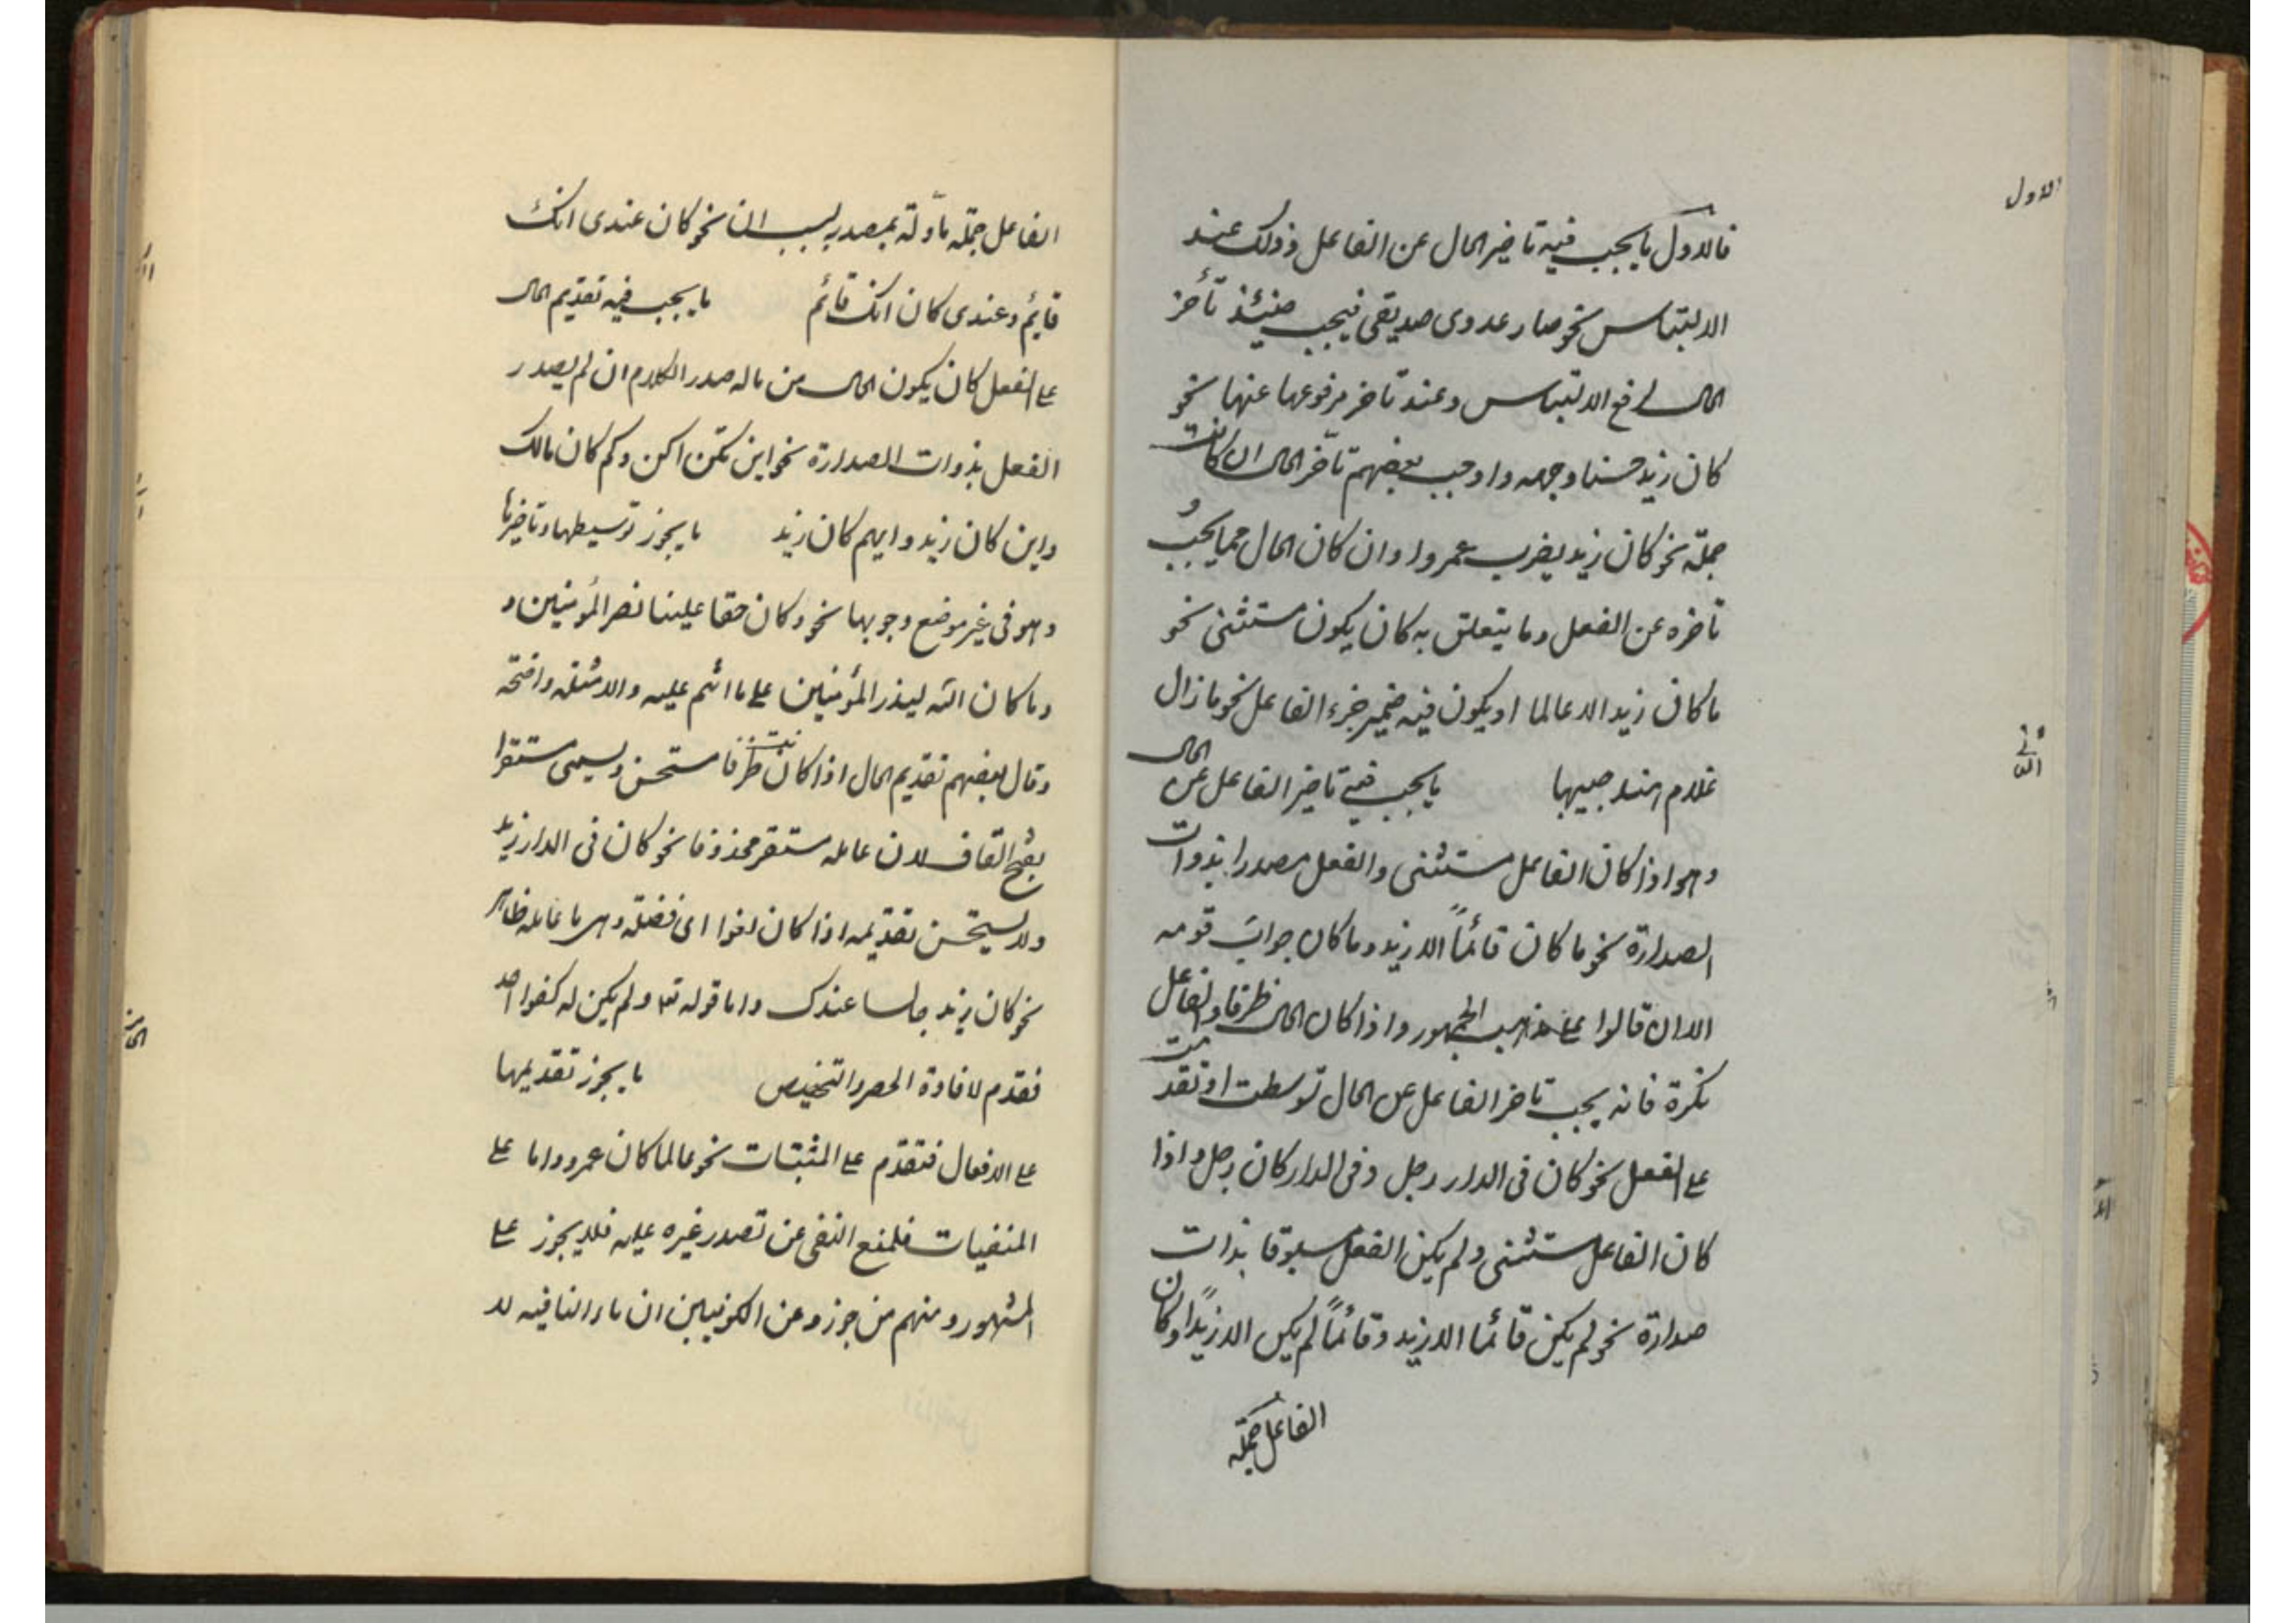 الاول
فالاول ما يجب فيه تاخير الحال عن الفاعل وذلك عند
الالتباس نحو صار عدوى صديقى فيجب حينئذ تأخر
الحال لرفع الالتباس وعند تاخر مرفوعها عنها نحو
كان زيد حسنا وجهه واوجب بعضهم تأخر الحال ان كانت
جملة نحو كان زيد يضرب عمروا وان كان الحال مما يجب
تأخره عن الفعل وما يتعلق به كان يكون مستثنى نحو
ما كان زيد الا عالما او يكون فيه ضمير جزء الفاعل نحو ما زال
غلام هند حبيبها ما يجب فيه تاخير الفاعل عن الحال
الثانى
وهو اذا كان الفاعل مستثنى والفعل مصدرا بذوات
الصدارة نحو ما كان قائماً الا زيد وما كان جوابَ قومه
الا ان قالوا على مذهب الجمهور واذا كان الحال ظرفا والفاعل
نكرة فانه يجب تاخر الفاعل عن الحال توسطت او تقدمت
على الفعل نحو كان فى الدار رجل وفى الدار كان رجل واذا
كان الفاعل مستثنى ولم يكن الفعل مسبوقا بذات
صدارة نحو لم يكن قائما الا زيد وقائماً لم يكن الا زيداً او كان
الفاعل جملة
الفاعل جملة مأولة بمصدر بسبب ان نحو كان عندى انك
قايم وعندى كان انك قائم ما يجب فيه تقديم الحال
على الفعل كان يكون الحال من ما له صدر الكلام ان لم يصدر
الفعل بذوات الصدارة نحو اين تكن اكن وكم كان مالك
واين كان زيد وايهم كان زيد ما يجوز توسيطها وتاخيرها
وهو فى غير موضع وجوبها نحو وكان حقا علينا نصر المؤمنين و
وما كان الله ليذر المؤمنين على ما انتم عليه والامثلة واضحة
وقال بعضهم تقديم الحال اذا كانت ظرفا مستحسن ويسمى مستقرا
بفتح القاف لان عامله مستقر محذوفا نحو كان فى الدار زيد
ولا يستحسن تقديمه اذا كان لغوا اى فضلة وهى ما عامله ظاهر
نحو كان زيد جالسا عندك واما قوله تعا ولم يكن له كفوا احد
فقدم لافادة الحصر والتخصيص ما يجوز تقديمها
على الافعال فتقدّم على المثبتات نحو عالما كان عمرو واما على
المنفيات فلمنع النفى عن تصدر غيره عليه فلا يجوز على
المشهور ومنهم من جوز وعن الكوفيين ان ماء النافيه لا